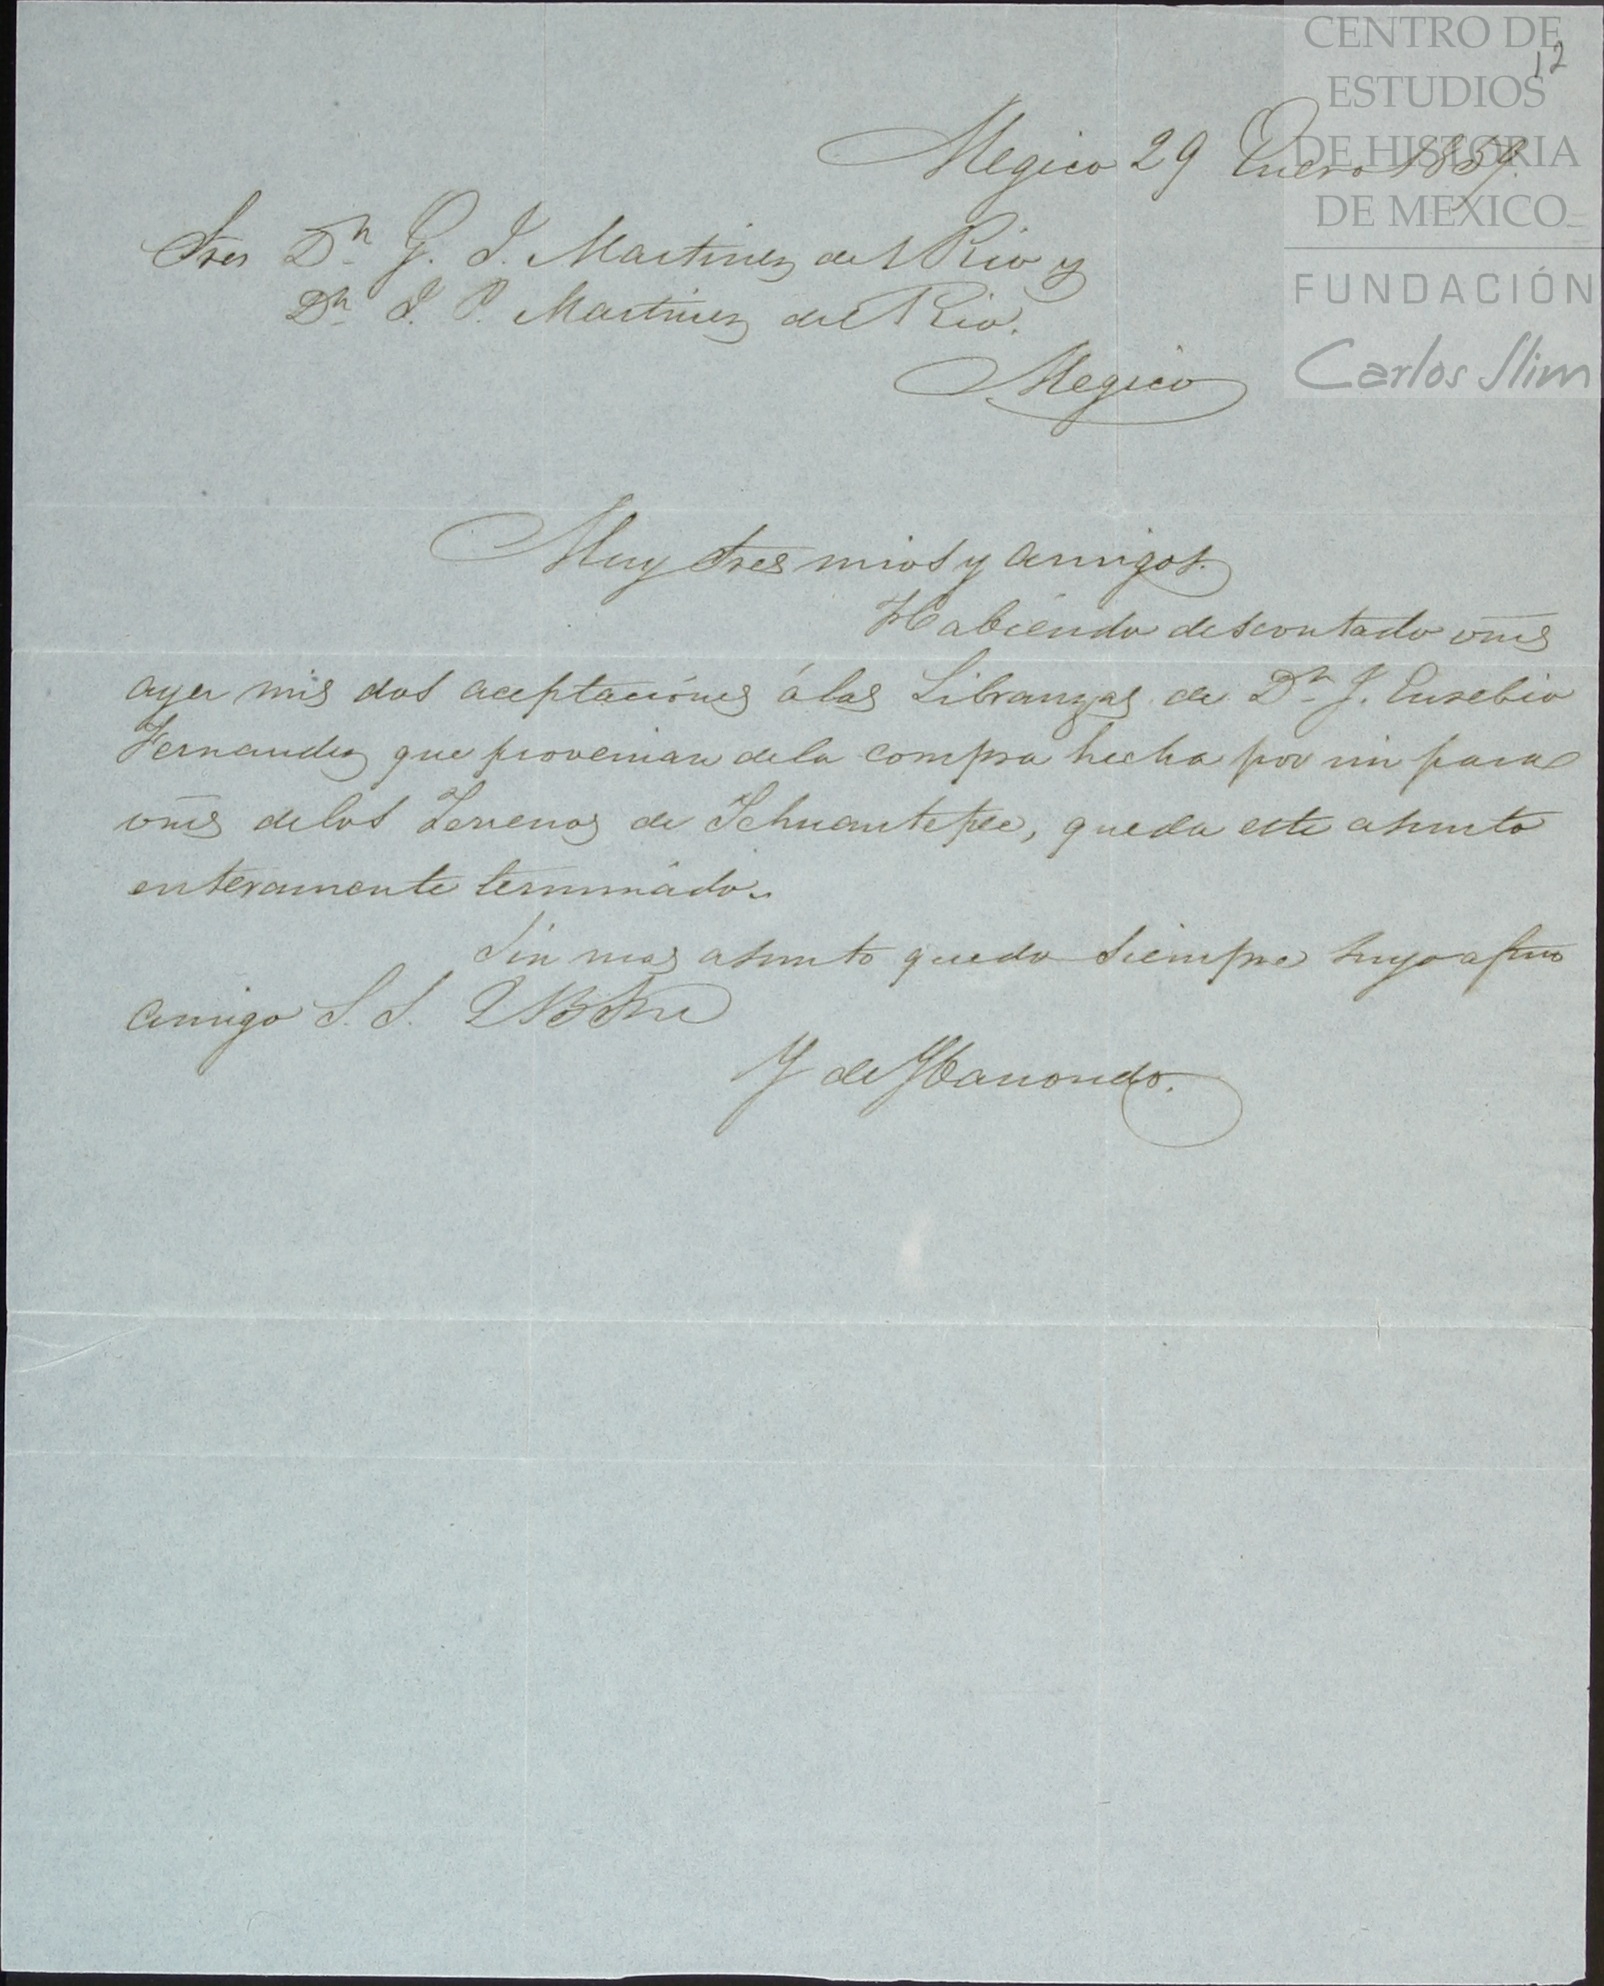 CENTRO DE
ESTUDIOS
DE HISTORIA
DE MEXICO
FUNDACIÓN
Carlos Slim
12
Megico 29 Enero 1859.
Sres Dn G. J. Martinez del Rio y
Dn J. P. Martinez del Rio.
Megico
Muy Sres mios y amigos.
Habiendo descontado vms
ayer mis dos aceptaciónes á las Libranzas de Dn J. Eusebio
Fernandez que provenian de la compra hecha por mi para
vms de los Terrenos de Tehuantepec, queda este asunto
enteramente terminado.
Sin mas asunto quedo siempre suyo afmo
amigo S. S. QBSM
Y de